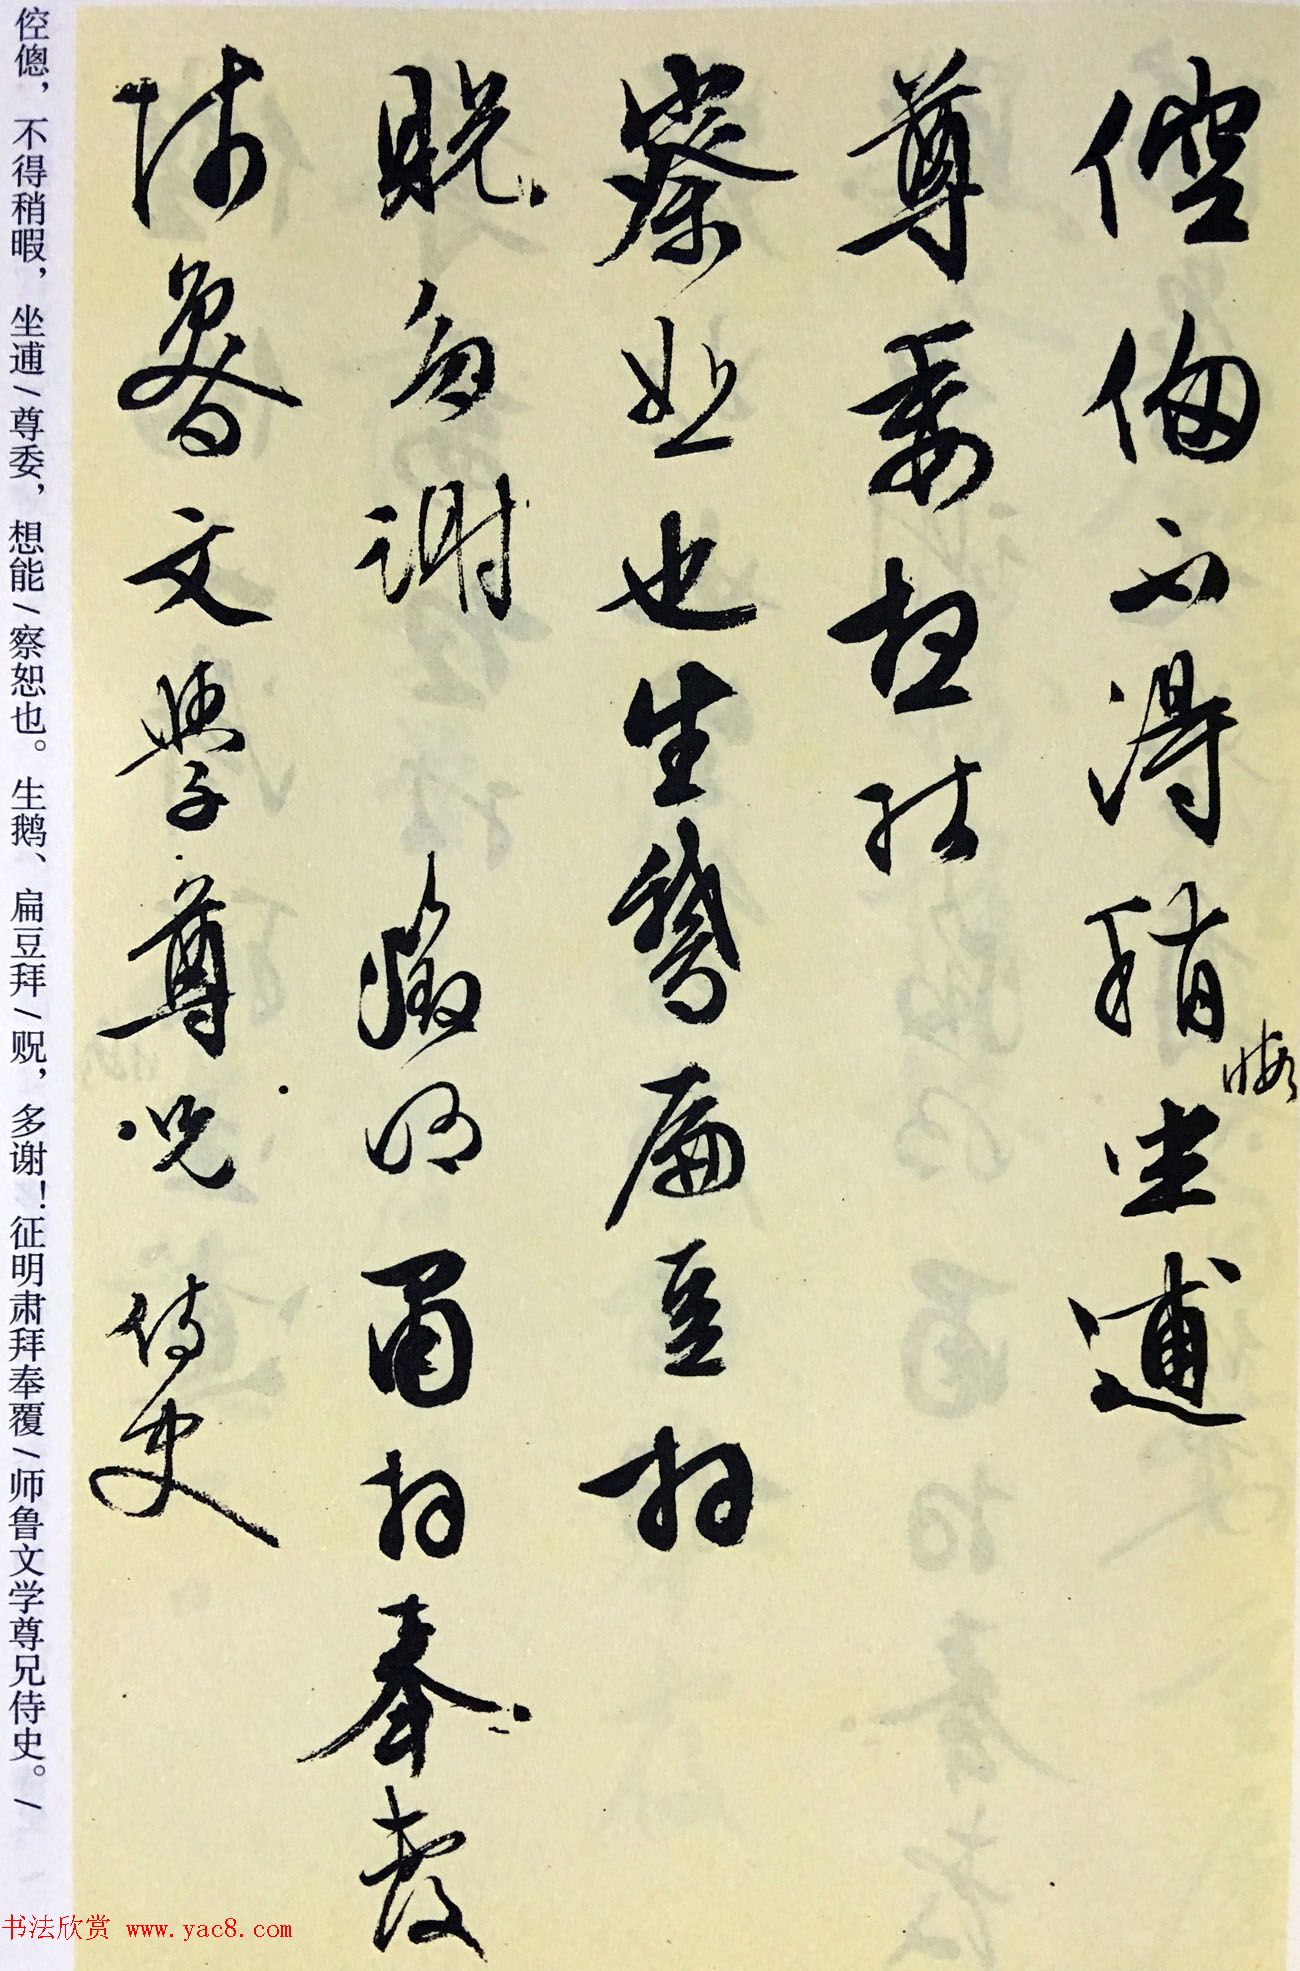 倥傯不得稍暇坐逋
尊委想能
察恕也生鵞扁豆拜
貺多谢徵明肃拜奉覆
师鲁文学尊兄侍史
倥偬，不得稍暇，坐逋/尊委，想能/察恕也。生鹅、扁豆拜/贶，多谢！征明肃拜奉覆/师鲁文学尊兄侍史。/
书法欣赏 www.yac8.com